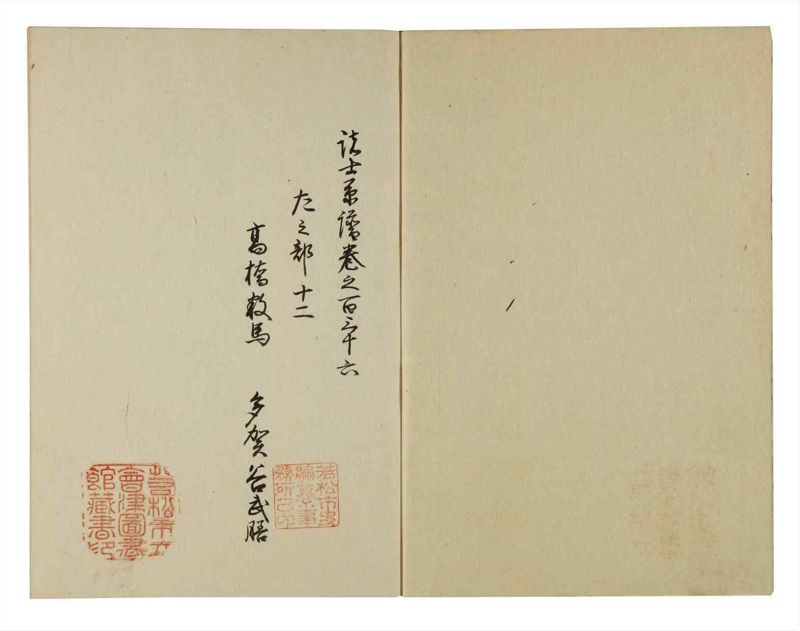 諸士系譜巻之百三十六
た之部 十二
高橋数馬 多賀谷武膳
若松市史
編纂事
務所之印
若松市立
會津圖書
館藏書印